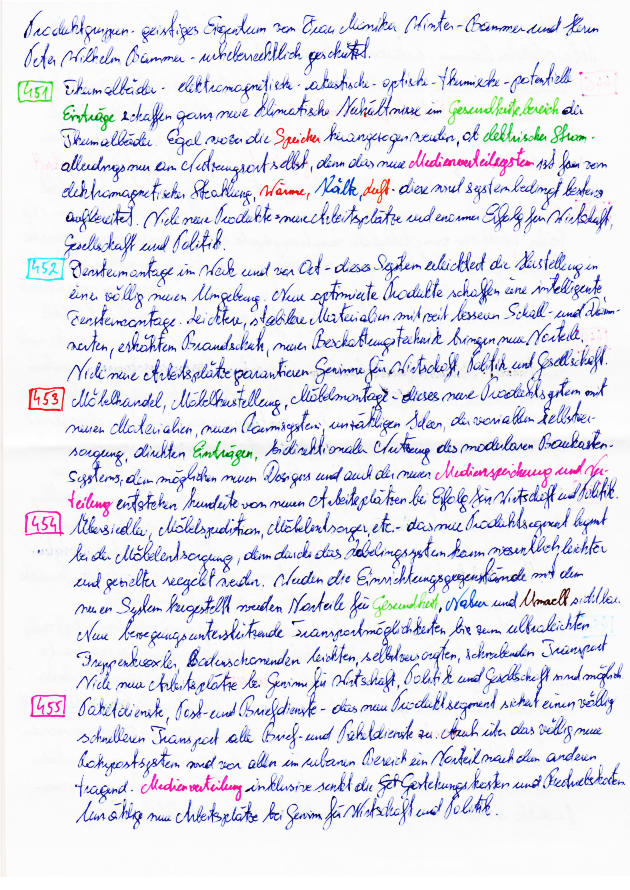 Produktgruppen - geistiges Eigentum von Frau Monika Winter-Bammer und Herrn
Peter Wilhelm Bammer - urheberrechtlich geschützt.
451 Thermalbäder - elektromagnetische - akustische - optische - thermische - potentielle
Einträge schaffen ganz neue klimatische Verhältnisse im Gesundheitsbereich der
Thermalbäder. Egal woher die Speicher herangezogen werden, ob elektrischer Strom -
allerdings nur am Nutzungsort selbst, denn das neue Medienverteilsystem ist frei von
elektromagnetischer Strahlung, Wärme, Kälte, Luft - diese wird systembedingt bestens
aufbereitet. Viele neue Produkte = neue Arbeitsplätze und enormer Erfolg für Wirtschaft,
Gesellschaft und Politik.
452 Fenstermontage im Werk und vor Ort - dieses System erleichtert die Herstellung in
einer völlig neuen Umgebung. Neue optimierte Produkte schaffen eine intelligente
Fenstermontage. Leichtere, stabilere Materialien mit weit besseren Schall- und Dämm-
werten, erhöhtem Brandschutz, neuer Beschattungstechnik bringen neue Vorteile.
Viele neue Arbeitsplätze garantieren Gewinne für Wirtschaft, Politik und Gesellschaft.
453 Möbelhandel, Möbelherstellung, Möbelmontage - dieses neue Produktsystem mit
neuen Materialien, neuen Raumsystem, unzähligen Ideen, der variablen Selbstver-
sorgung, direkten Einträgen, bidirektionaler Nutzung des modularen Baukasten-
systems, dem möglichen neuen Designs und auch der neuen Medienspeicherung und Ver-
teilung entstehen hunderte von neuen Arbeitsplätzen bei Erfolg für Wirtschaft und Politik.
454 Übersiedler, Möbelspedition, Möbelentsorger etc. - das neue Produktsegment beginnt
bei der Möbelentsorgung, denn durch das System kann wesentlich leichter
und gezielter recycelt werden. Werden die Einrichtungsgegenstände mit dem
neuen System hergestellt werden Vorteile für Gesundheit, Natur und Umwelt sichtbar.
Neue bewegungsunterstützende Transportmöglichkeiten bis zum ultraleichten
Treppenkuorler, Bodenschonenden leichten, selbstversorgten, schwebenden Transport
Viele neue Arbeitsplätze bei Gewinn für Wirtschaft, Politik und Gesellschaft sind möglich
455 Paketdienste, Post- und Briefdienste - das neue Produktsegment sichert einen völlig
schnelleren Transport aller Brief- und Paketdienste zu. Auch über das völlig neue
Rohrpostsystem wird vor allem im urbanen Bereich ein Vorteil nach dem anderen
tragend. Medienverteilung inklusive senkt die Gestehungskosten und Betriebskosten.
Unzählige neue Arbeitsplätze bei Gewinn für Wirtschaft und Politik.